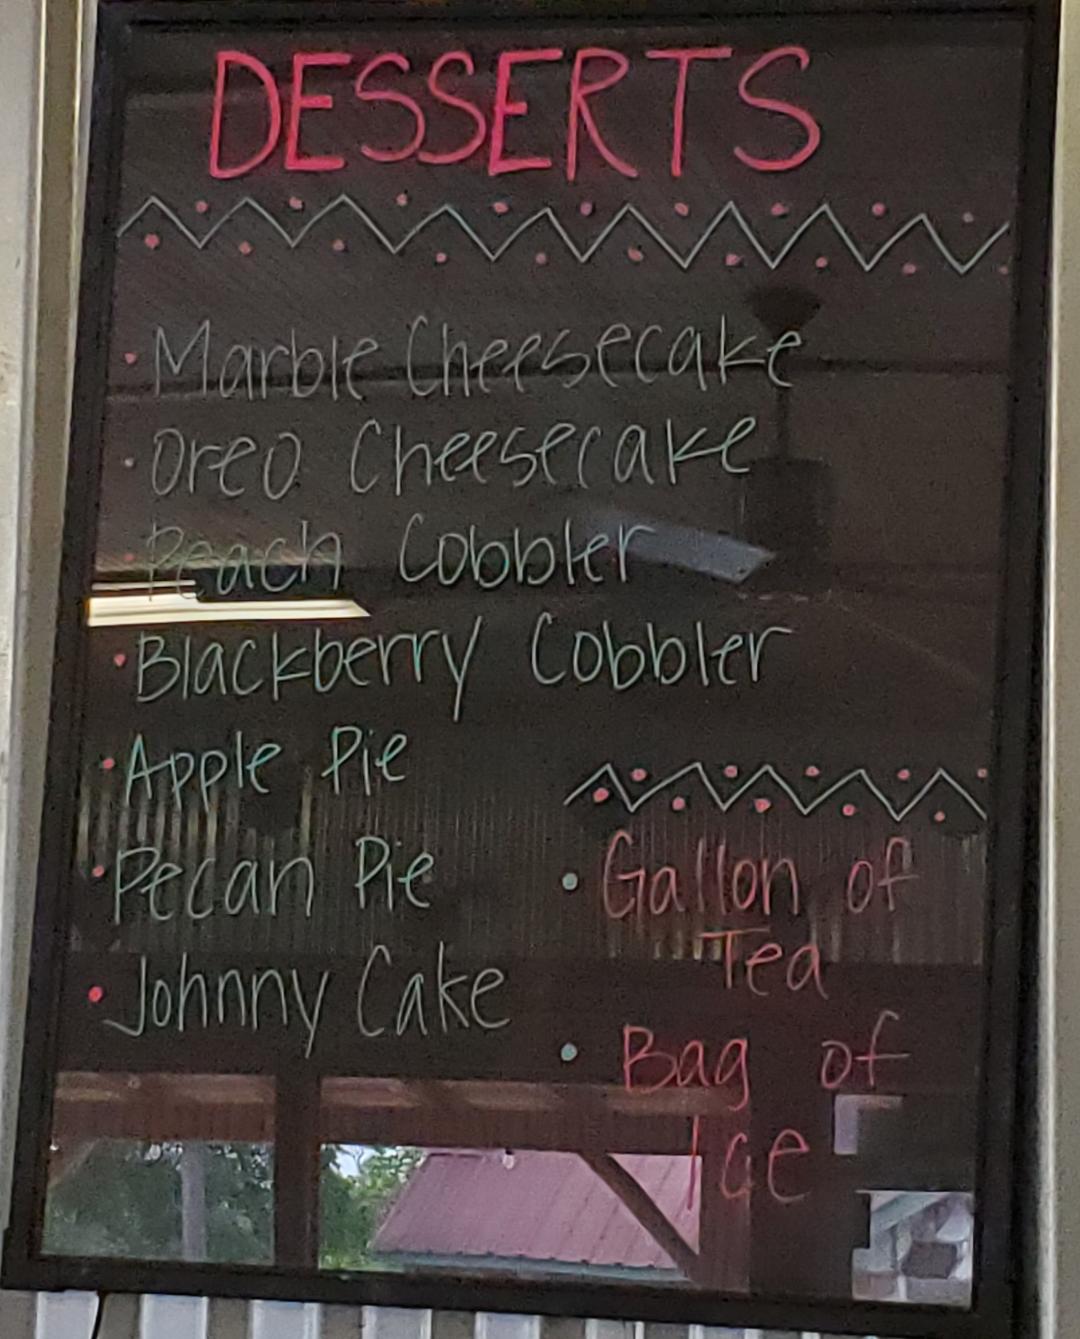 DESSERTS
• Marble Cheesecake
• Oreo Cheesecake
• Peach Cobbler
• Blackberry Cobbler
• Apple Pie
• Pecan Pie
• Johnny Cake
• Gallon of
Tea
• Bag of
Ice